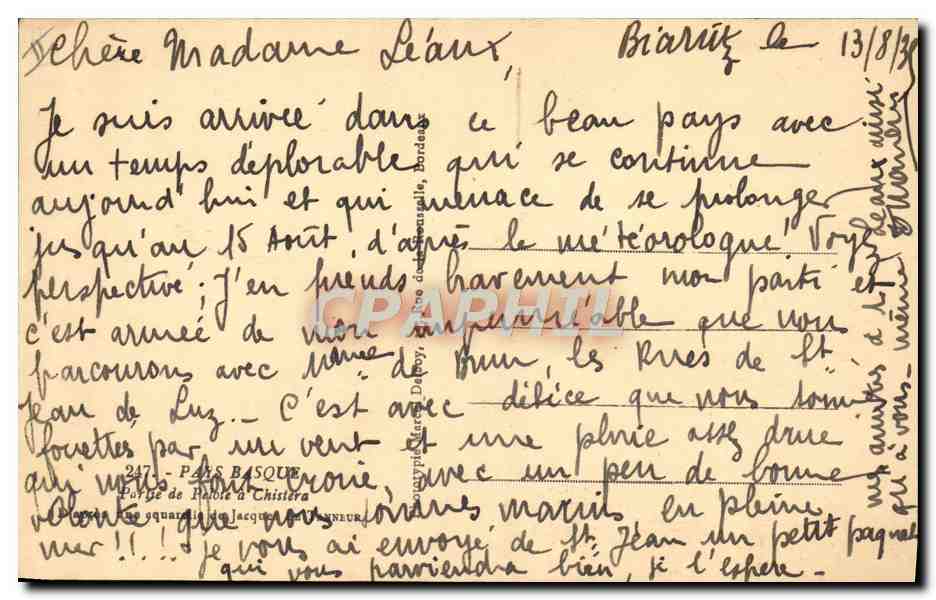 Chère Madame Léaux, Biarritz le 13/8/3
Je suis arrivée dans ce beau pays avec
un temps déplorable qui se continue
aujourd'hui et qui menace de se prolonger
jusqu'au 15 Août, d'après le météorologue!
perspective; J'en prends bravement mon parti et
c'est armée de mon imperméable que nous
parcourons avec Mme de les Rues de St
Jean de Luz. C'est avec délice que nous
fouettés par un vent et une pluie assez drue
qui nous font croire, avec un peu de bonne
volonté que nous sommes marins en pleine
mer!!!.. Je vous ai envoyé de St Jean un petit paquet
qui vous parviendra bien, je l'espère -
mes amitiés à Léaux ainsi
qu'à vous-même
247. - PAYS BASQUE
Partie de Pelote à Chistera
D'après une aquarelle de Jacques LE TANNEUR
Phototypie Marcel Delboy, Rue de la Rousselle, Bordeaux
CPAPHIL